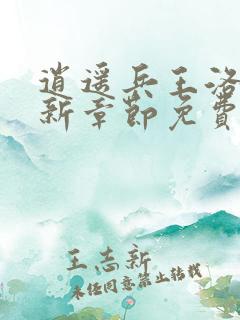 逍遥兵王洛
新章节免费
王志新
未经同意禁止转载